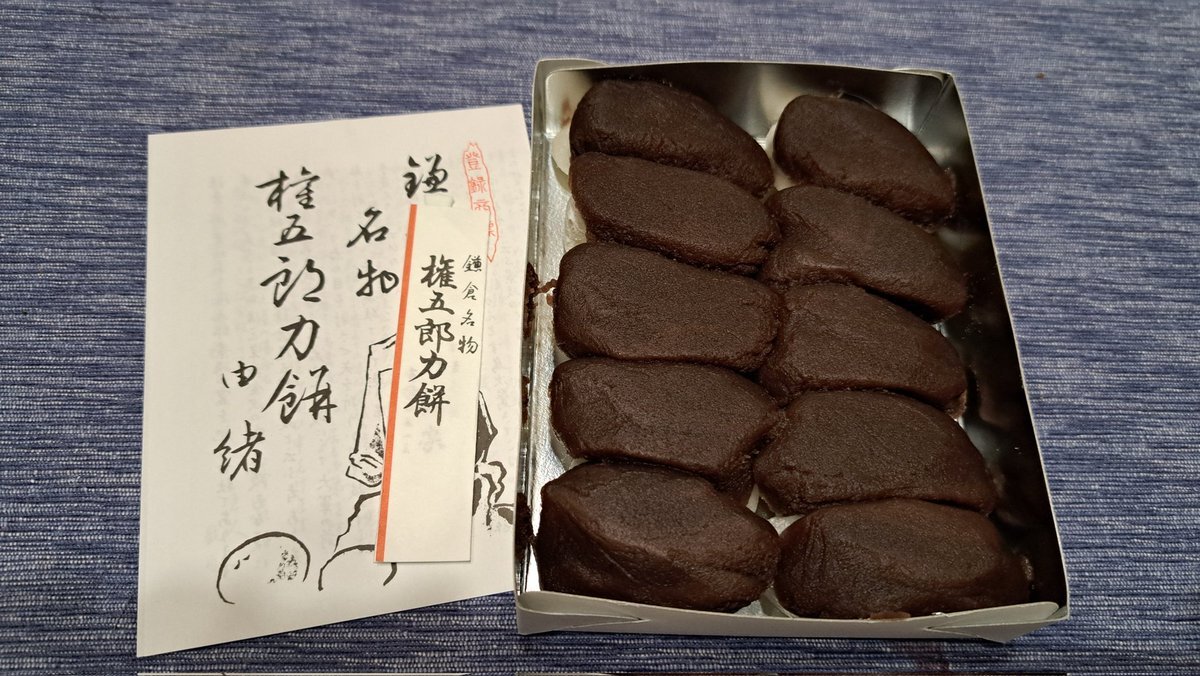 登録商標
鎌
名物
権五郎力餅
由緒
鎌倉名物
権五郎力餅